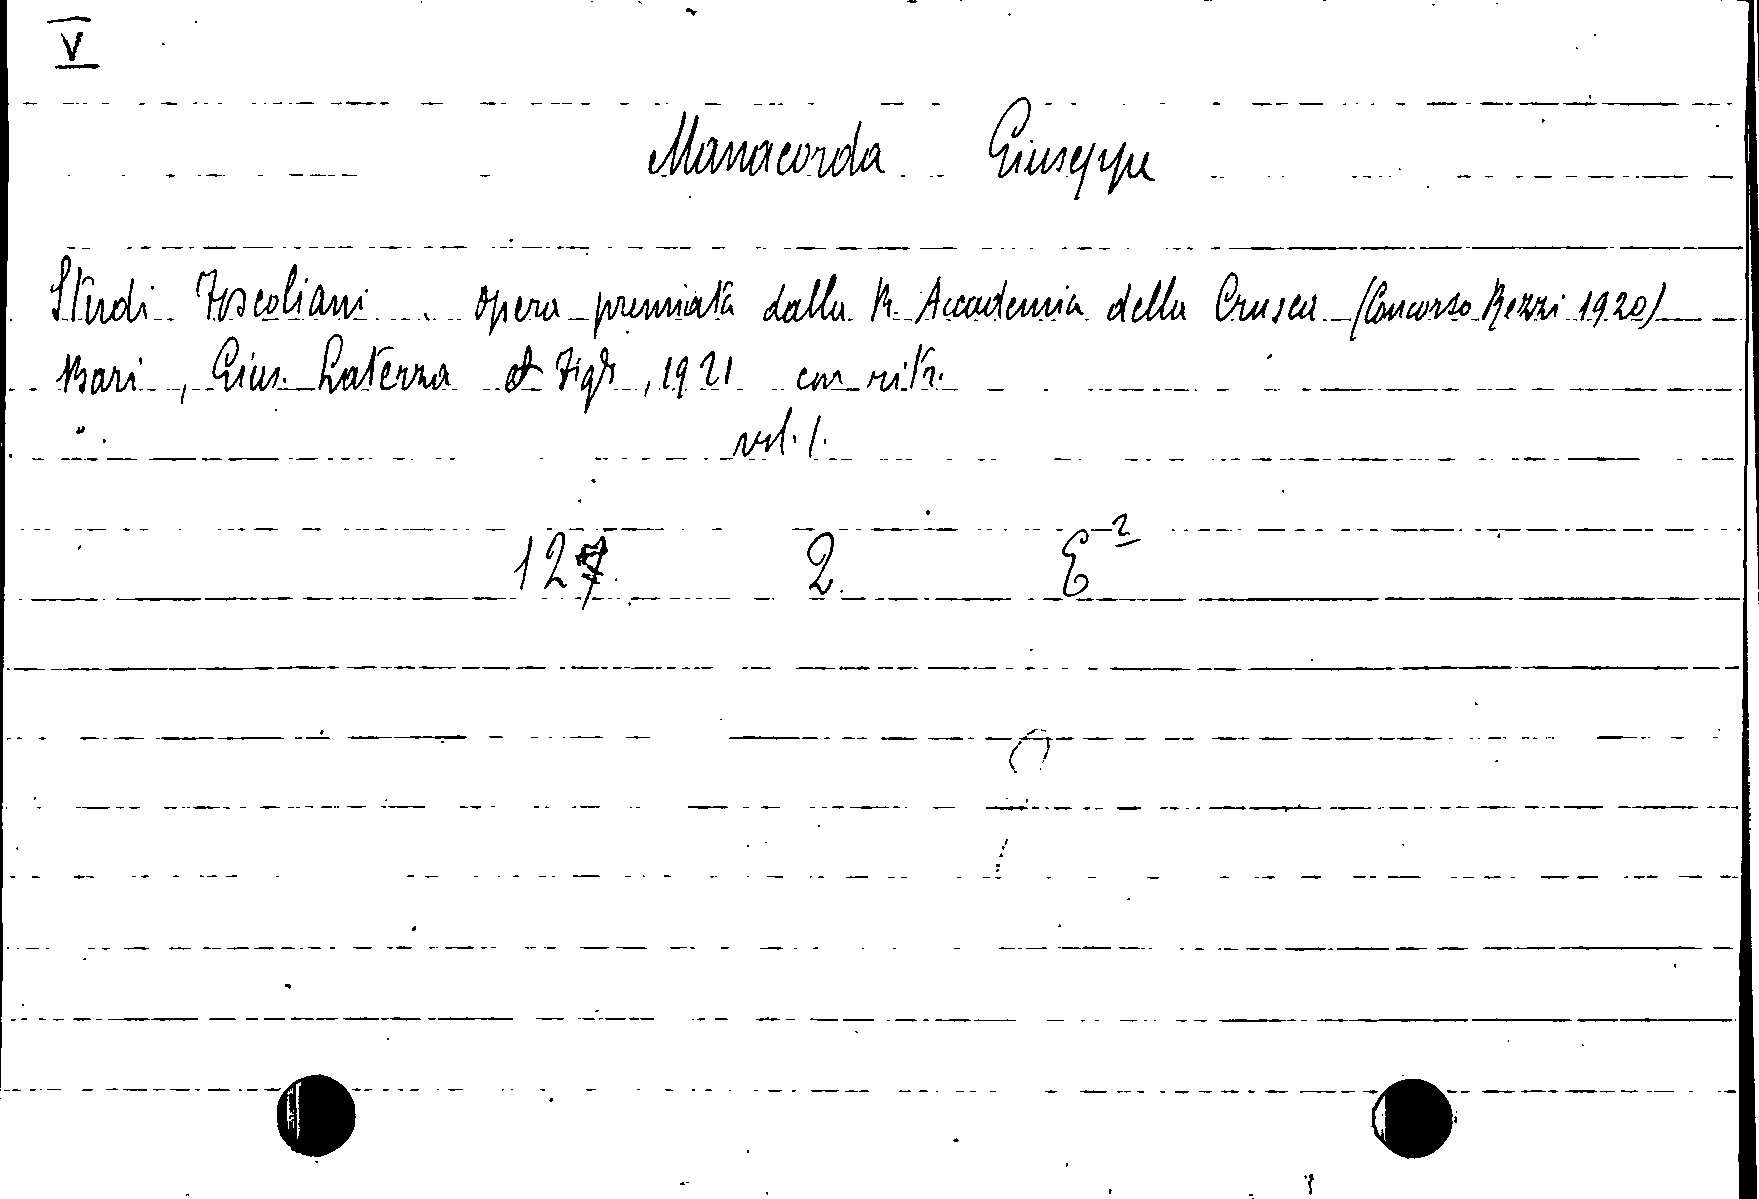 V
Manacorda Giuseppe
Studi Foscoliani. Opera premiata dalla R. Accademia della Crusca (Concorso Rezzi 1920)
Bari, Gius. Laterza et Figli, 1921 con ritr.
vol. 1.
127 2 E²